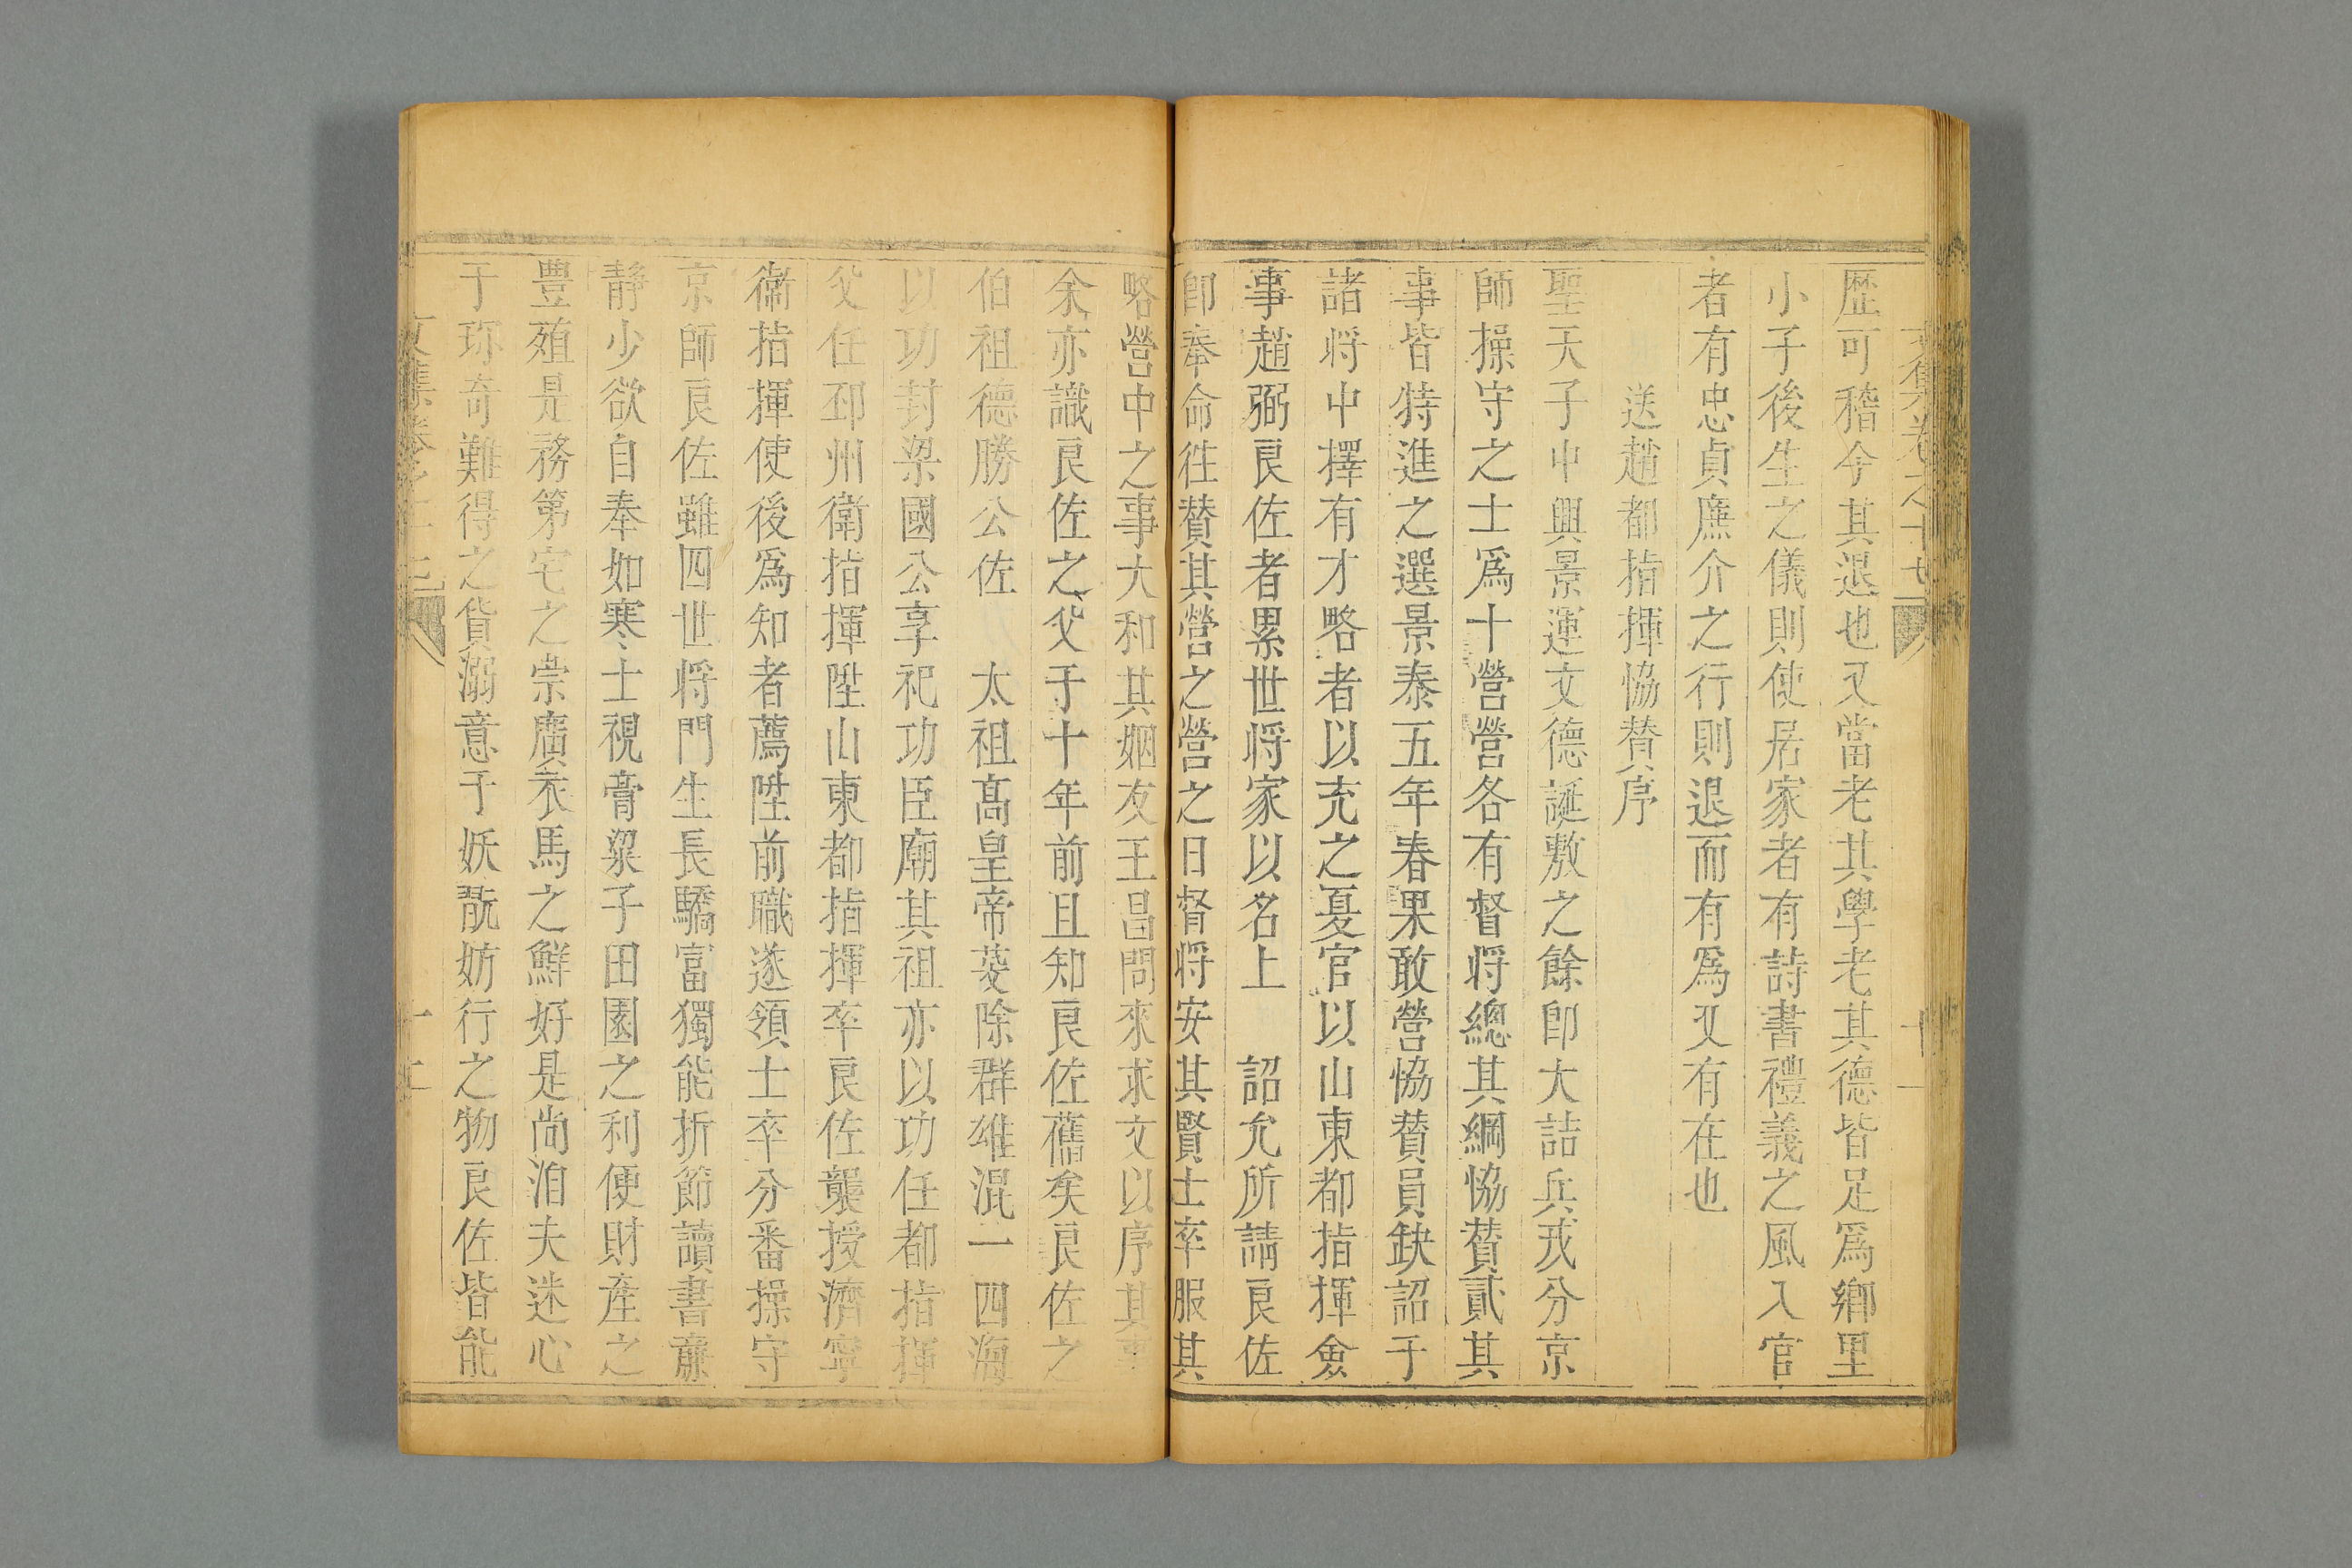 歷可稽今其退也又當老其學老其德皆足爲鄕里
小子後生之儀則使居家者有詩書禮義之風入官
者有忠貞廉介之行則退而有爲又有在也
送趙都指揮恊賛序
聖天子中興景運文德誕敷之餘卽大詰兵戎分京
師操守之士爲十營營各有督將總其綱恊賛貳其
事皆特進之選景泰五年春果敢營恊賛員缺詔于
諸將中擇有才略者以充之夏官以山東都指揮僉
事趙弼良佐者累世將家以名上 詔允所請良佐
卽奉命徃賛其營之營之日督將安其賢士卒服其
略營中之事大和其姻友王昌問來求文以序其事
余亦識良佐之父于十年前且知良佐舊矣良佐之
伯祖德勝公佐 太祖高皇帝芟除群雄混一四海
以功封梁國公享祀功臣廟其祖亦以功任都指揮
父任邳州衛指揮陞山東都指揮卒良佐襲授濟寧
衛指揮使後爲知者薦陞前職遂領士卒分番操守
京師良佐雖四世將門生長驕富獨能折節讀書廉
靜少欲自奉如寒士視膏粱子田園之利便財產之
豊殖是務第宅之崇廣衣馬之鮮好是尚洎夫迷心
于珎奇難得之貨溺意于妖翫妨行之物良佐皆能
文集卷之十七
十一